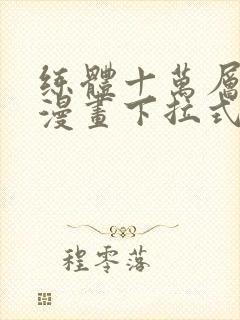 练體十萬層
漫畫下拉式
程零落